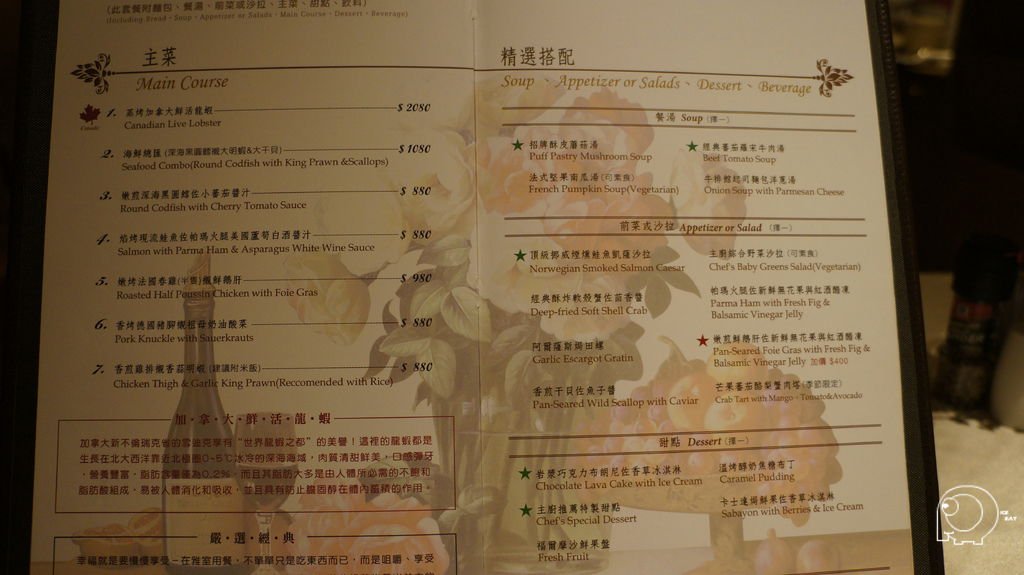 (此套餐附麵包、餐湯、前菜或沙拉、主菜、甜點、飲料)
(Including Bread、Soup、Appetizer or Salads、Main Course、Dessert、Beverage)
主菜
Main Course
Canada
1. 蒸烤加拿大鮮活龍蝦 $ 2080
Canadian Live Lobster
2. 海鮮總匯 (深海黑圓鱈襯大明蝦&大干貝) $ 1080
Seafood Combo(Round Codfish with King Prawn &Scallops)
3. 嫩煎深海黑圓鱈佐小蕃茄醬汁 $ 880
Round Codfish with Cherry Tomato Sauce
4. 焰烤現流鮭魚佐帕瑪火腿美國蘆筍白酒醬汁 $ 880
Salmon with Parma Ham & Asparagus White Wine Sauce
5. 嫩烤法國春雞(半隻)襯鮮鵝肝 $ 980
Roasted Half Poussin Chicken with Foie Gras
6. 香烤德國豬腳襯祖母奶油酸菜 $ 880
Pork Knuckle with Sauerkrauts
7. 香煎雞排襯香蒜明蝦 (建議附米飯) $ 880
Chicken Thigh & Garlic King Prawn(Reccomended with Rice)
加·拿·大·鮮·活·龍·蝦
加拿大新不倫瑞克省的雪迪克享有“世界龍蝦之都”的美譽！這裡的龍蝦都是
生長在北大西洋靠近北極圈0~5℃冰冷的深海海域，肉質清甜鮮美，口感彈牙
，營養豐富，脂肪含量僅為0.2%，而且其脂肪大多是由人體所必需的不飽和
脂肪酸組成，易被人體消化和吸收，並且具有防止膽固醇在體內蓄積的作用。
嚴·選·經·典
幸福就是要慢慢享受－在雅室用餐，不單單只是吃東西而已，而是咀嚼、享受
精選搭配
Soup 、Appetizer or Salads、Dessert、Beverage
餐湯 Soup (擇一)
招牌酥皮蘑菇湯
Puff Pastry Mushroom Soup
經典蕃茄羅宋牛肉湯
Beef Tomato Soup
法式堅果南瓜湯(可素食)
French Pumpkin Soup(Vegetarian)
牛排館起司麵包洋蔥湯
Onion Soup with Parmesan Cheese
前菜或沙拉 Appetizer or Salad (擇一)
頂級挪威煙燻鮭魚凱薩沙拉
Norwegian Smoked Salmon Caesar
主廚綜合野菜沙拉 (可素食)
Chef's Baby Greens Salad(Vegetarian)
經典酥炸軟殼蟹佐茴香醬
Deep-fried Soft Shell Crab
帕瑪火腿佐新鮮無花果與紅酒醋凍
Parma Ham with Fresh Fig &
Balsamic Vinegar Jelly
阿爾薩斯焗田螺
Garlic Escargot Gratin
嫩煎鮮鵝肝佐新鮮無花果與紅酒醋凍
Pan-Seared Foie Gras with Fresh Fig &
Balsamic Vinegar Jelly 加價 $400
香煎干貝佐魚子醬
Pan-Seared Wild Scallop with Caviar
芒果蕃茄酪梨蟹肉塔 (季節限定)
Crab Tart with Mango、Tomato&Avocado
甜點 Dessert (擇一)
岩漿巧克力布朗尼佐香草冰淇淋
Chocolate Lava Cake with Ice Cream
溫烤醇奶焦糖布丁
Caramel Pudding
主廚推薦特製甜點
Chef's Special Dessert
卡士達焗鮮果佐香草冰淇淋
Sabayon with Berries & Ice Cream
福爾摩沙鮮果盤
Fresh Fruit